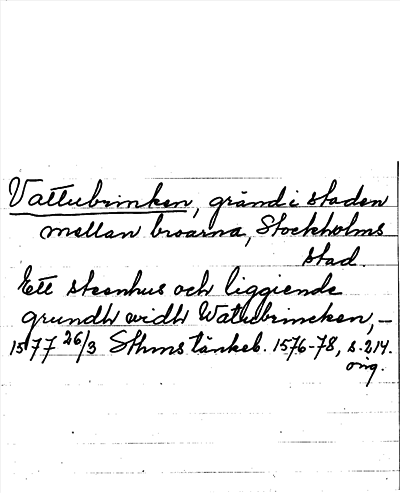 Vattubrinken, gränd i staden
mellan broarna, Stockholms
stad.
Ett steenhus och liggiende
grundh widh Watubrincken, –
1577 26/3 Sthms tänkeb. 1576-78, s. 214.
orig.